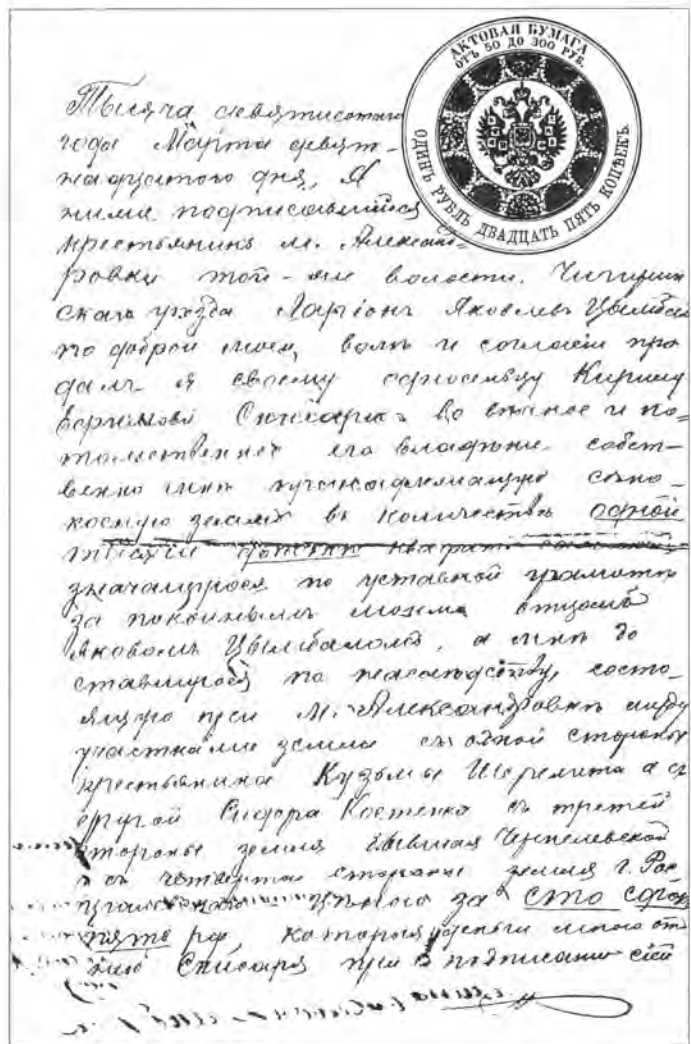 АКТОВАЯ БУМАГА
ОТЪ 50 ДО 300 РУБ.
ОДИНЪ РУБЛЬ ДВАДЦАТЬ ПЯТЬ КОПѢЕКЪ.
Тысяча девятисотаго
года Марта девят-
надцатого дня, Я
ниже подписавшийся
крестьянинъ м. Александ-
ровки той-же волости. Чигирин
скаго уѣзда Ларіонъ Яковлевъ Цымбал
по доброй моей волѣ и согласію про
далъ я своему односельцу Кирилу
во вѣчное и по-
его владѣніе собст-
венно мнѣ принадлежащую сѣно-
косную землю въ количествѣ одной
значащуюся по уставной грамотѣ
за покойнымъ моимъ отцомъ
Яковомъ Цымбаломъ, а мнѣ до
ставшуюся по наслѣдству, состо-
ящую при м. Александровкѣ между
участками земли съ одной стороны
крестьянина Кузьмы Шеремета а съ
другой Сидора Костенко съ третей
стороны земля бывшая
и съ четвертой стороны земля г.
цѣною за сто сорок
пять руб, которыя деньги мною от
при подписаніи сей